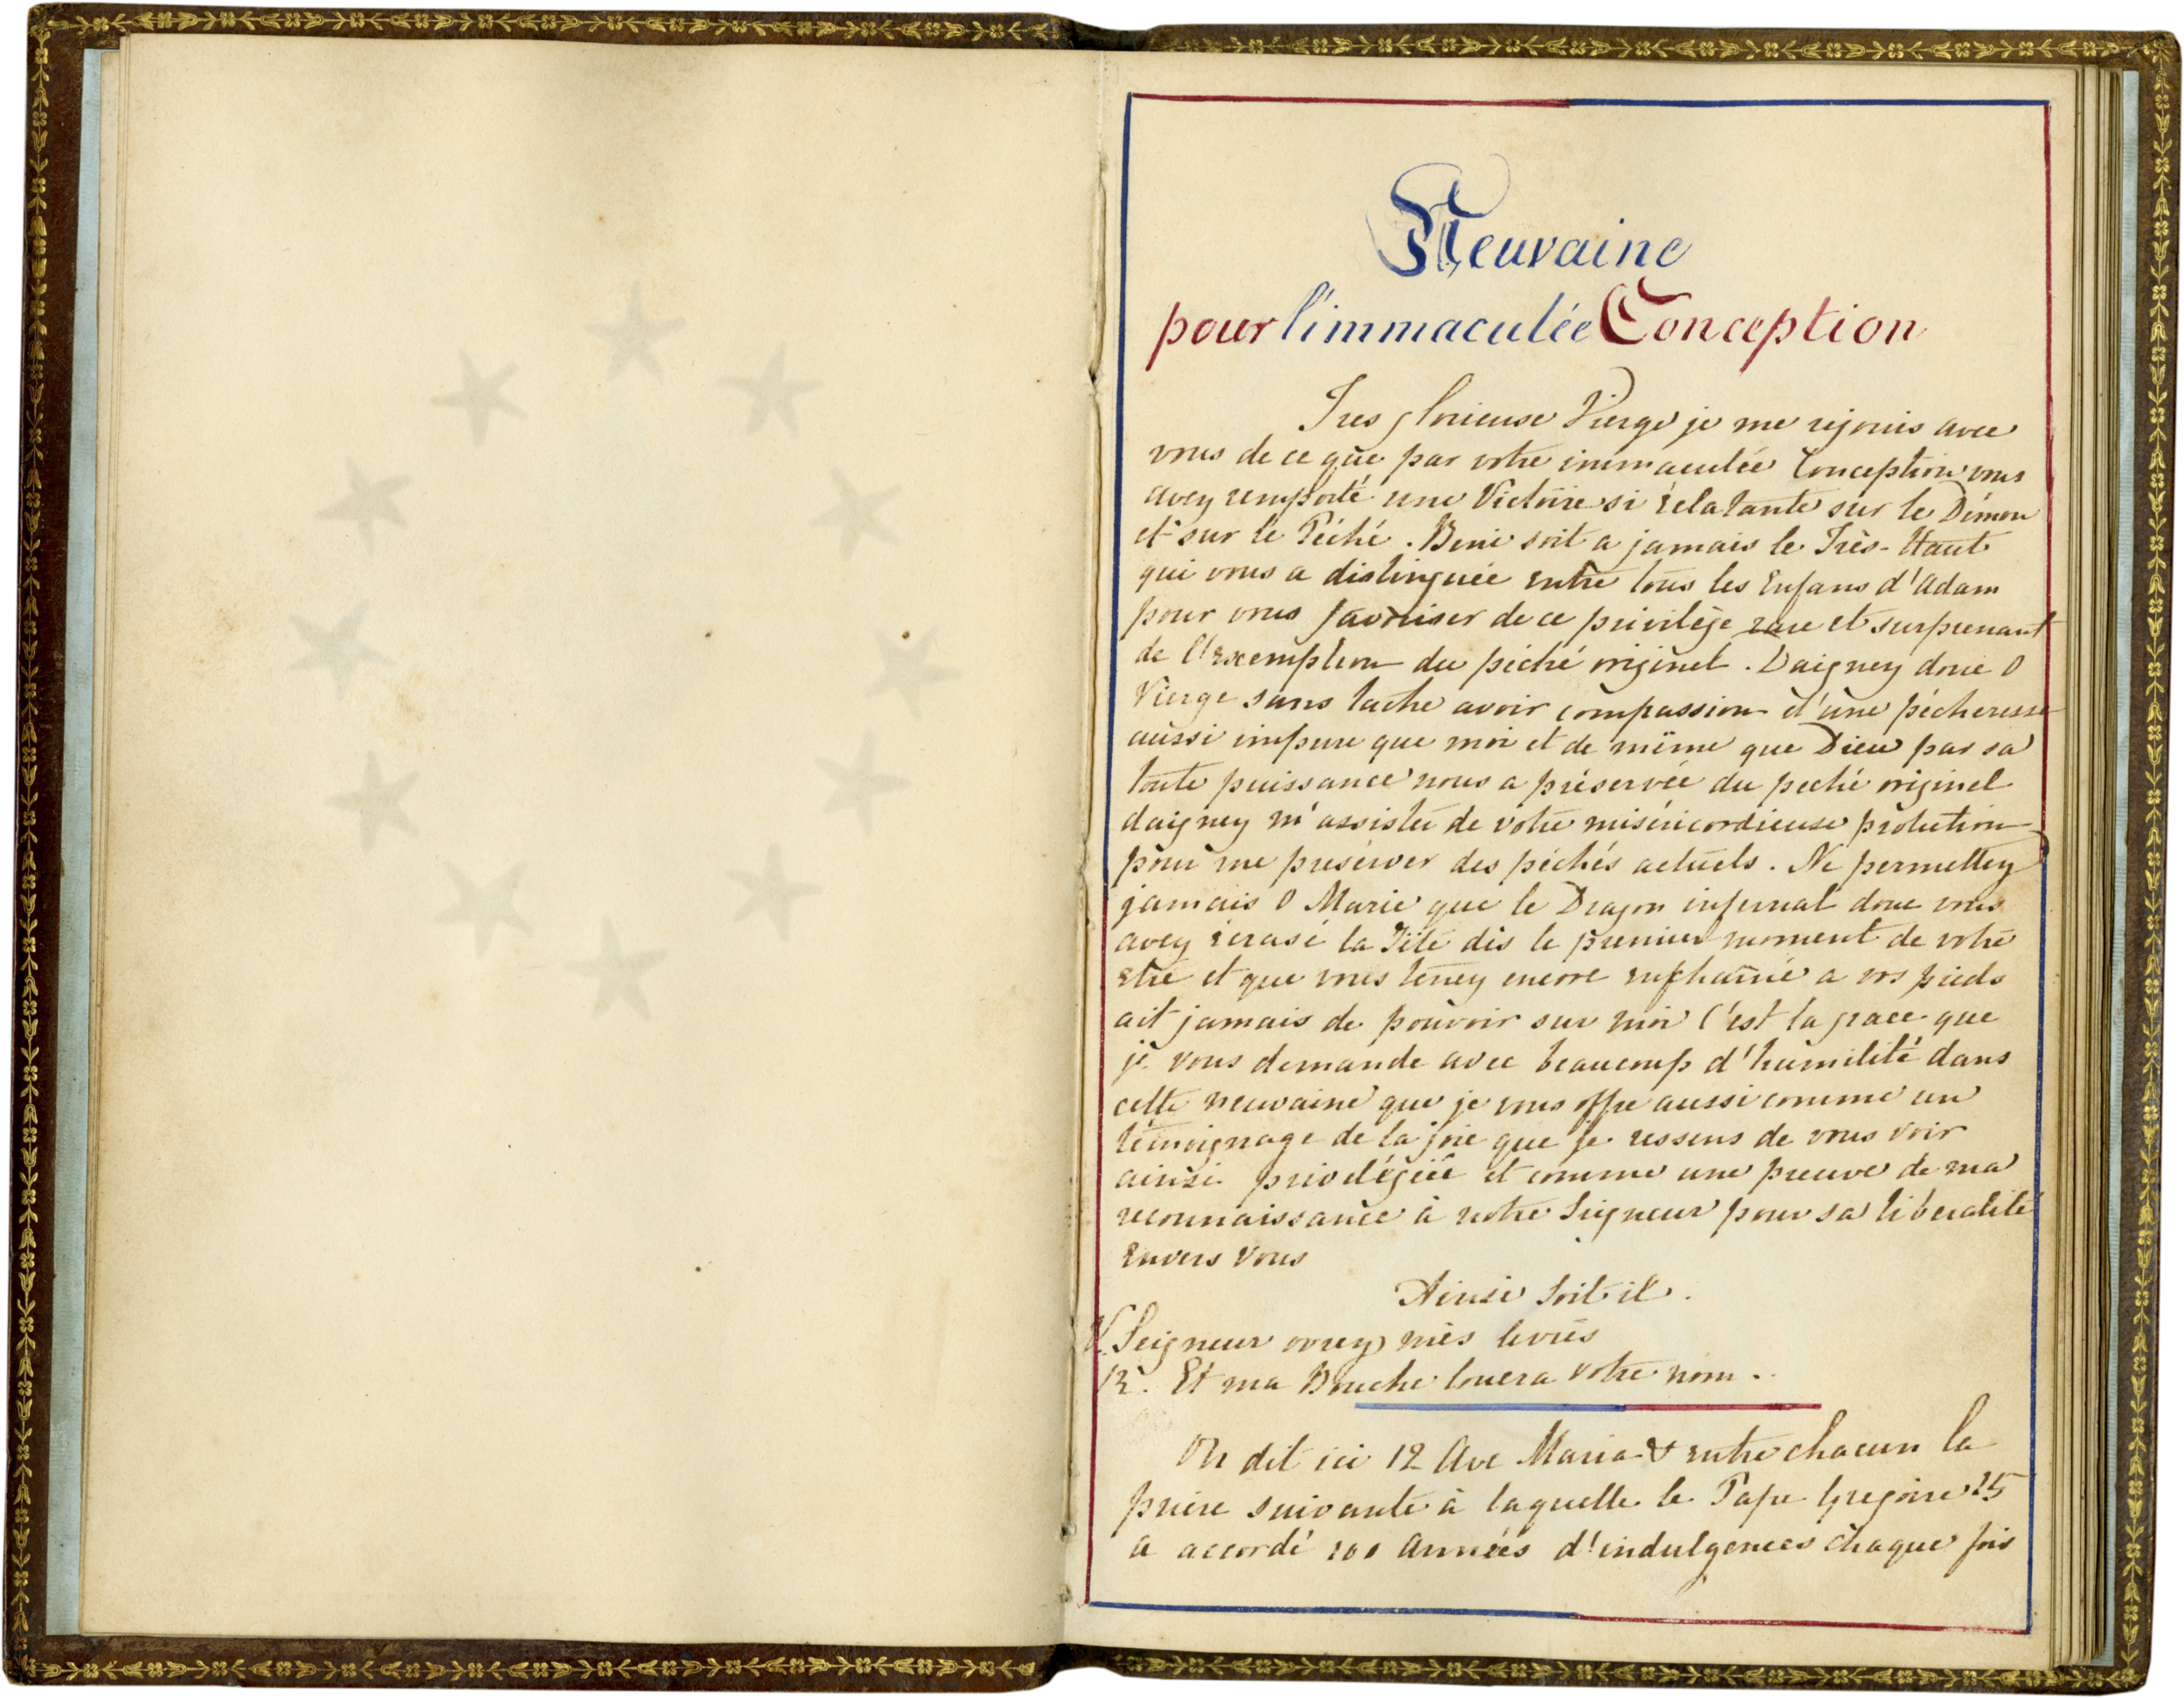 Neuvaine
pour l'immaculée Conception
Tres glorieuse Vierge je me rejouis avec
vous de ce que par votre immaculée Conception vous
avez remporté une Victoire si éclatante sur le Démon
et sur le Péché. Beni soit a jamais le Très-Haut
qui vous a distinguée entre tous les Enfans d'Adam
pour vous favoriser de ce privilège rare et surprenant
de l'exemption du péché originel. Daignez donc O
Vierge sans tache avoir compassion d'une pécheresse
aussi impure que moi et de même que Dieu par sa
toute puissance nous a préservée du peché originel
daignez m'assister de votre miséricordieuse protection
pour me preserver des péchés actuels. Ne permettez
jamais O Marie que le Dragon infernal donc vous
avez écrasé la Tête dès le premier moment de votre
etre et que vous tenez encore enchainé a vos pieds
ait jamais de pouvoir sur moi C'est la grace que
je vous demande avec beaucoup d'humilité dans
cette neuvaine que je vous offre aussi comme un
témoignage de la joie que je ressens de vous voir
ainsi privilégiée et comme une preuve de ma
reconnaissance à notre Seigneur pour sa libéralité
Envers Vous
Ainsi Soit il.
V. Seigneur ovrez mes levres
R. Et ma Bouche louera votre nom.
On dit ici 12 Ave Maria & entre chacun la
priere suivante à laquelle le Pape Gregoire 15
a accordé 100 Années d'indulgences chaque fois